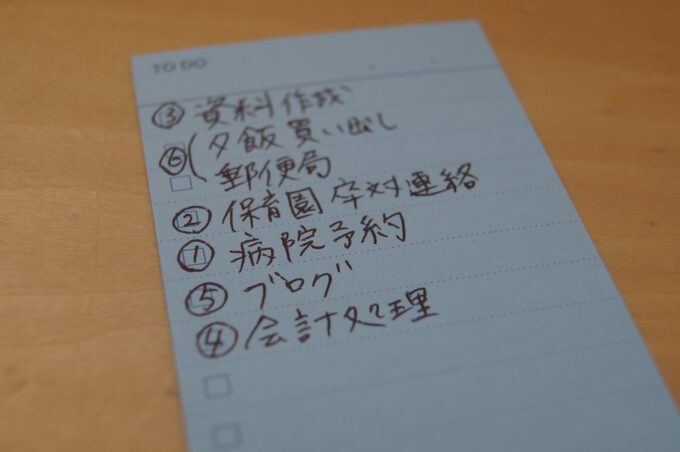 TO DO
③ 資料作成
⑥ ( 夕飯買い出し
郵便局
② 保育園卒対連絡
① 病院予約
⑤ ブログ
④ 会計処理